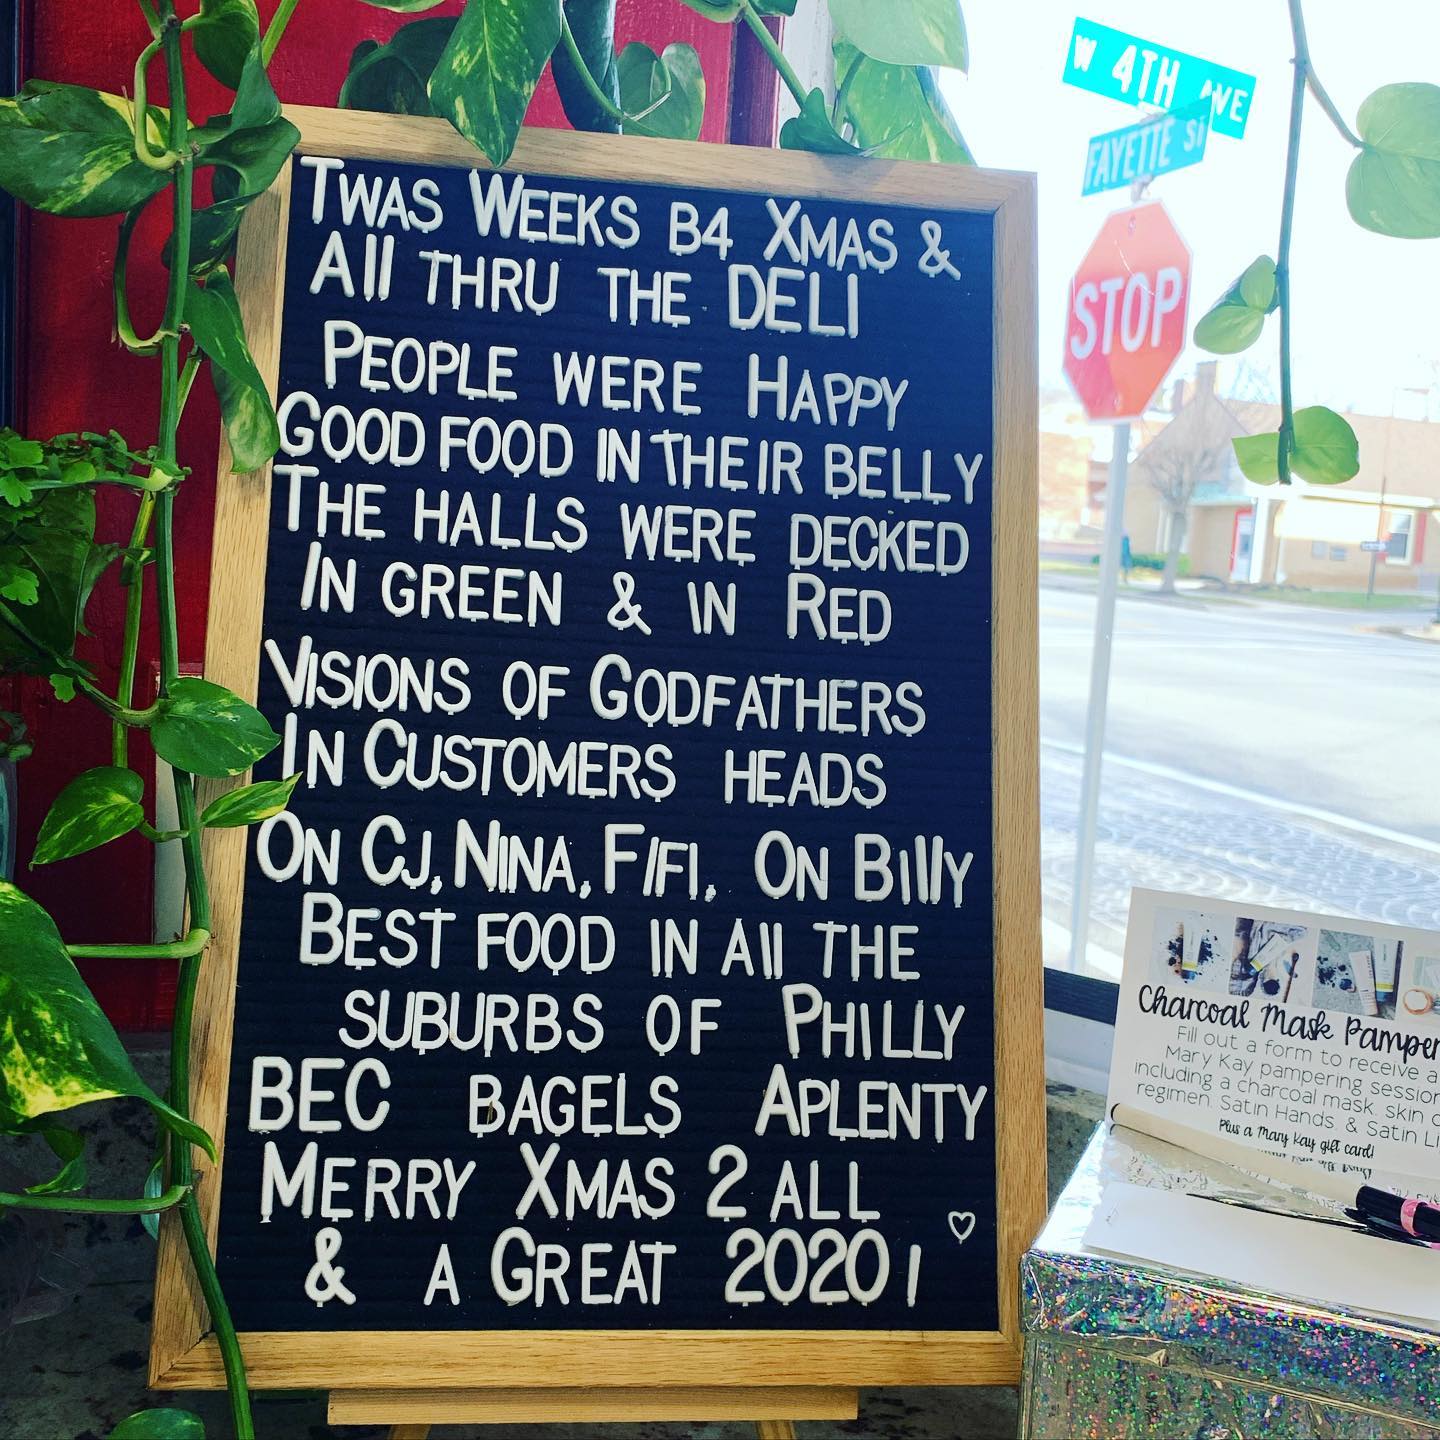 TWAS WEEKS B4 XMAS &
All THRU THE DELI
PEOPLE WERE HAPPY
GOOD FOOD IN THEIR BELLY
THE HALLS WERE DECKED
IN GREEN & IN RED
VISIONS OF GODFATHERS
IN CUSTOMERS HEADS
ON CJ, NINA, FIFI, ON BIllY
BEST FOOD IN All THE
SUBURBS OF PHILLY
BEC BAGELS APLENTY
MERRY XMAS 2 ALL
& A GREAT 2020!
W 4TH AVE
FAYETTE ST
STOP
Charcoal Mask
Fill out a form to receive a
Mary Kay pampering session
including a charcoal mask, skin
regimen, Satin Hands, & Satin
Plus a Mary Kay gift card!